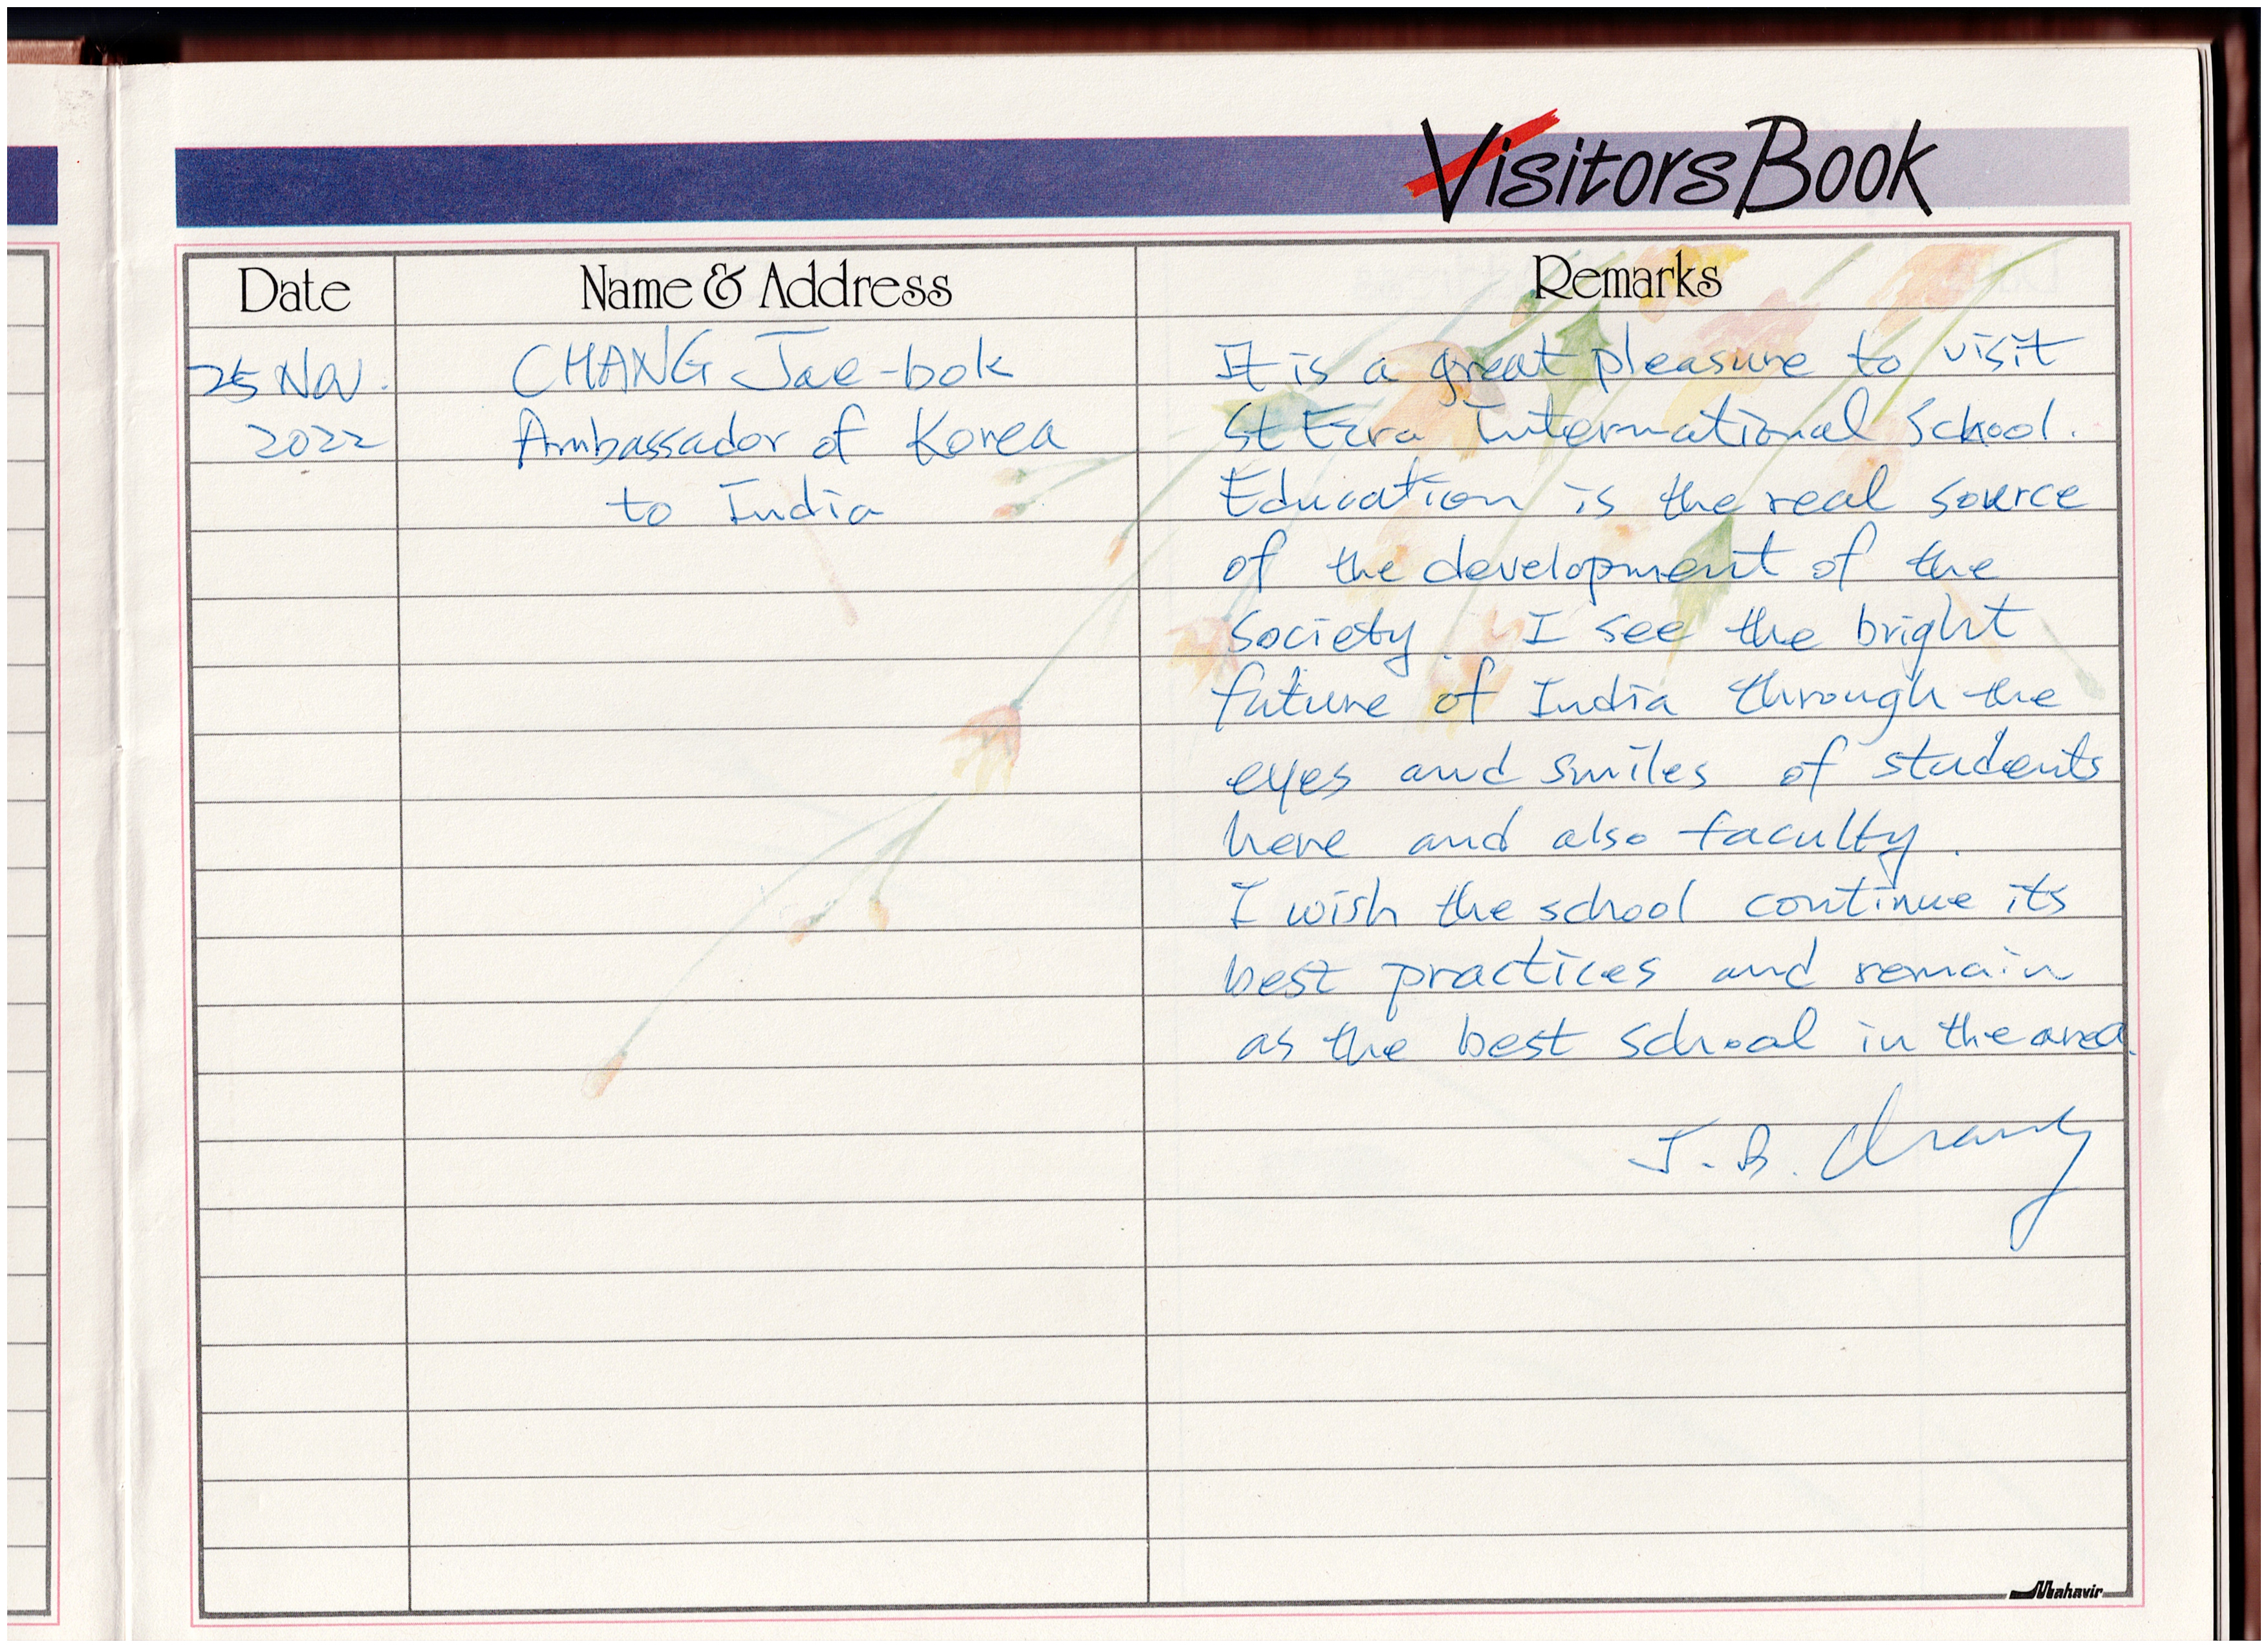 Visitors Book
Date
Name & Address
Remarks
25 Nov.
2022
CHANG Jae-bok
Ambassador of Korea
to India
It is a great pleasure to visit
St Ezra International School.
Education is the real source
of the development of the
society. I see the bright
future of India through the
eyes and smiles of students
here and also faculty.
I wish the school continue its
best practices and remain
as the best school in the area.
J. B. Chang
Mahavir